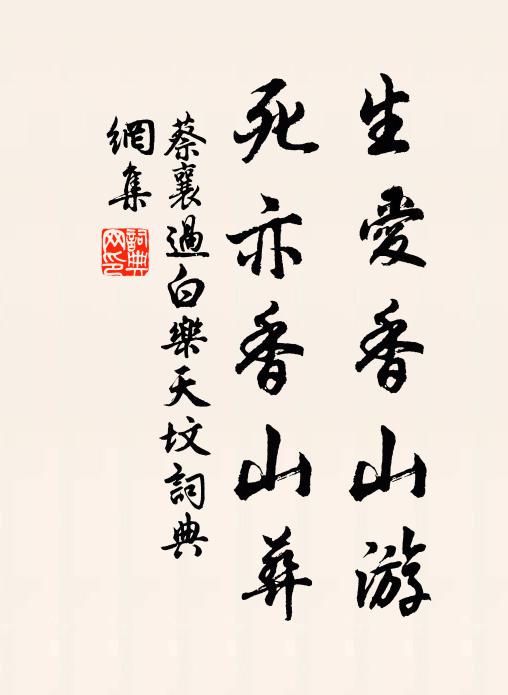 生愛香山游
死亦香山葬
蔡襄過白樂天墳詞典
網集
詞典
网印